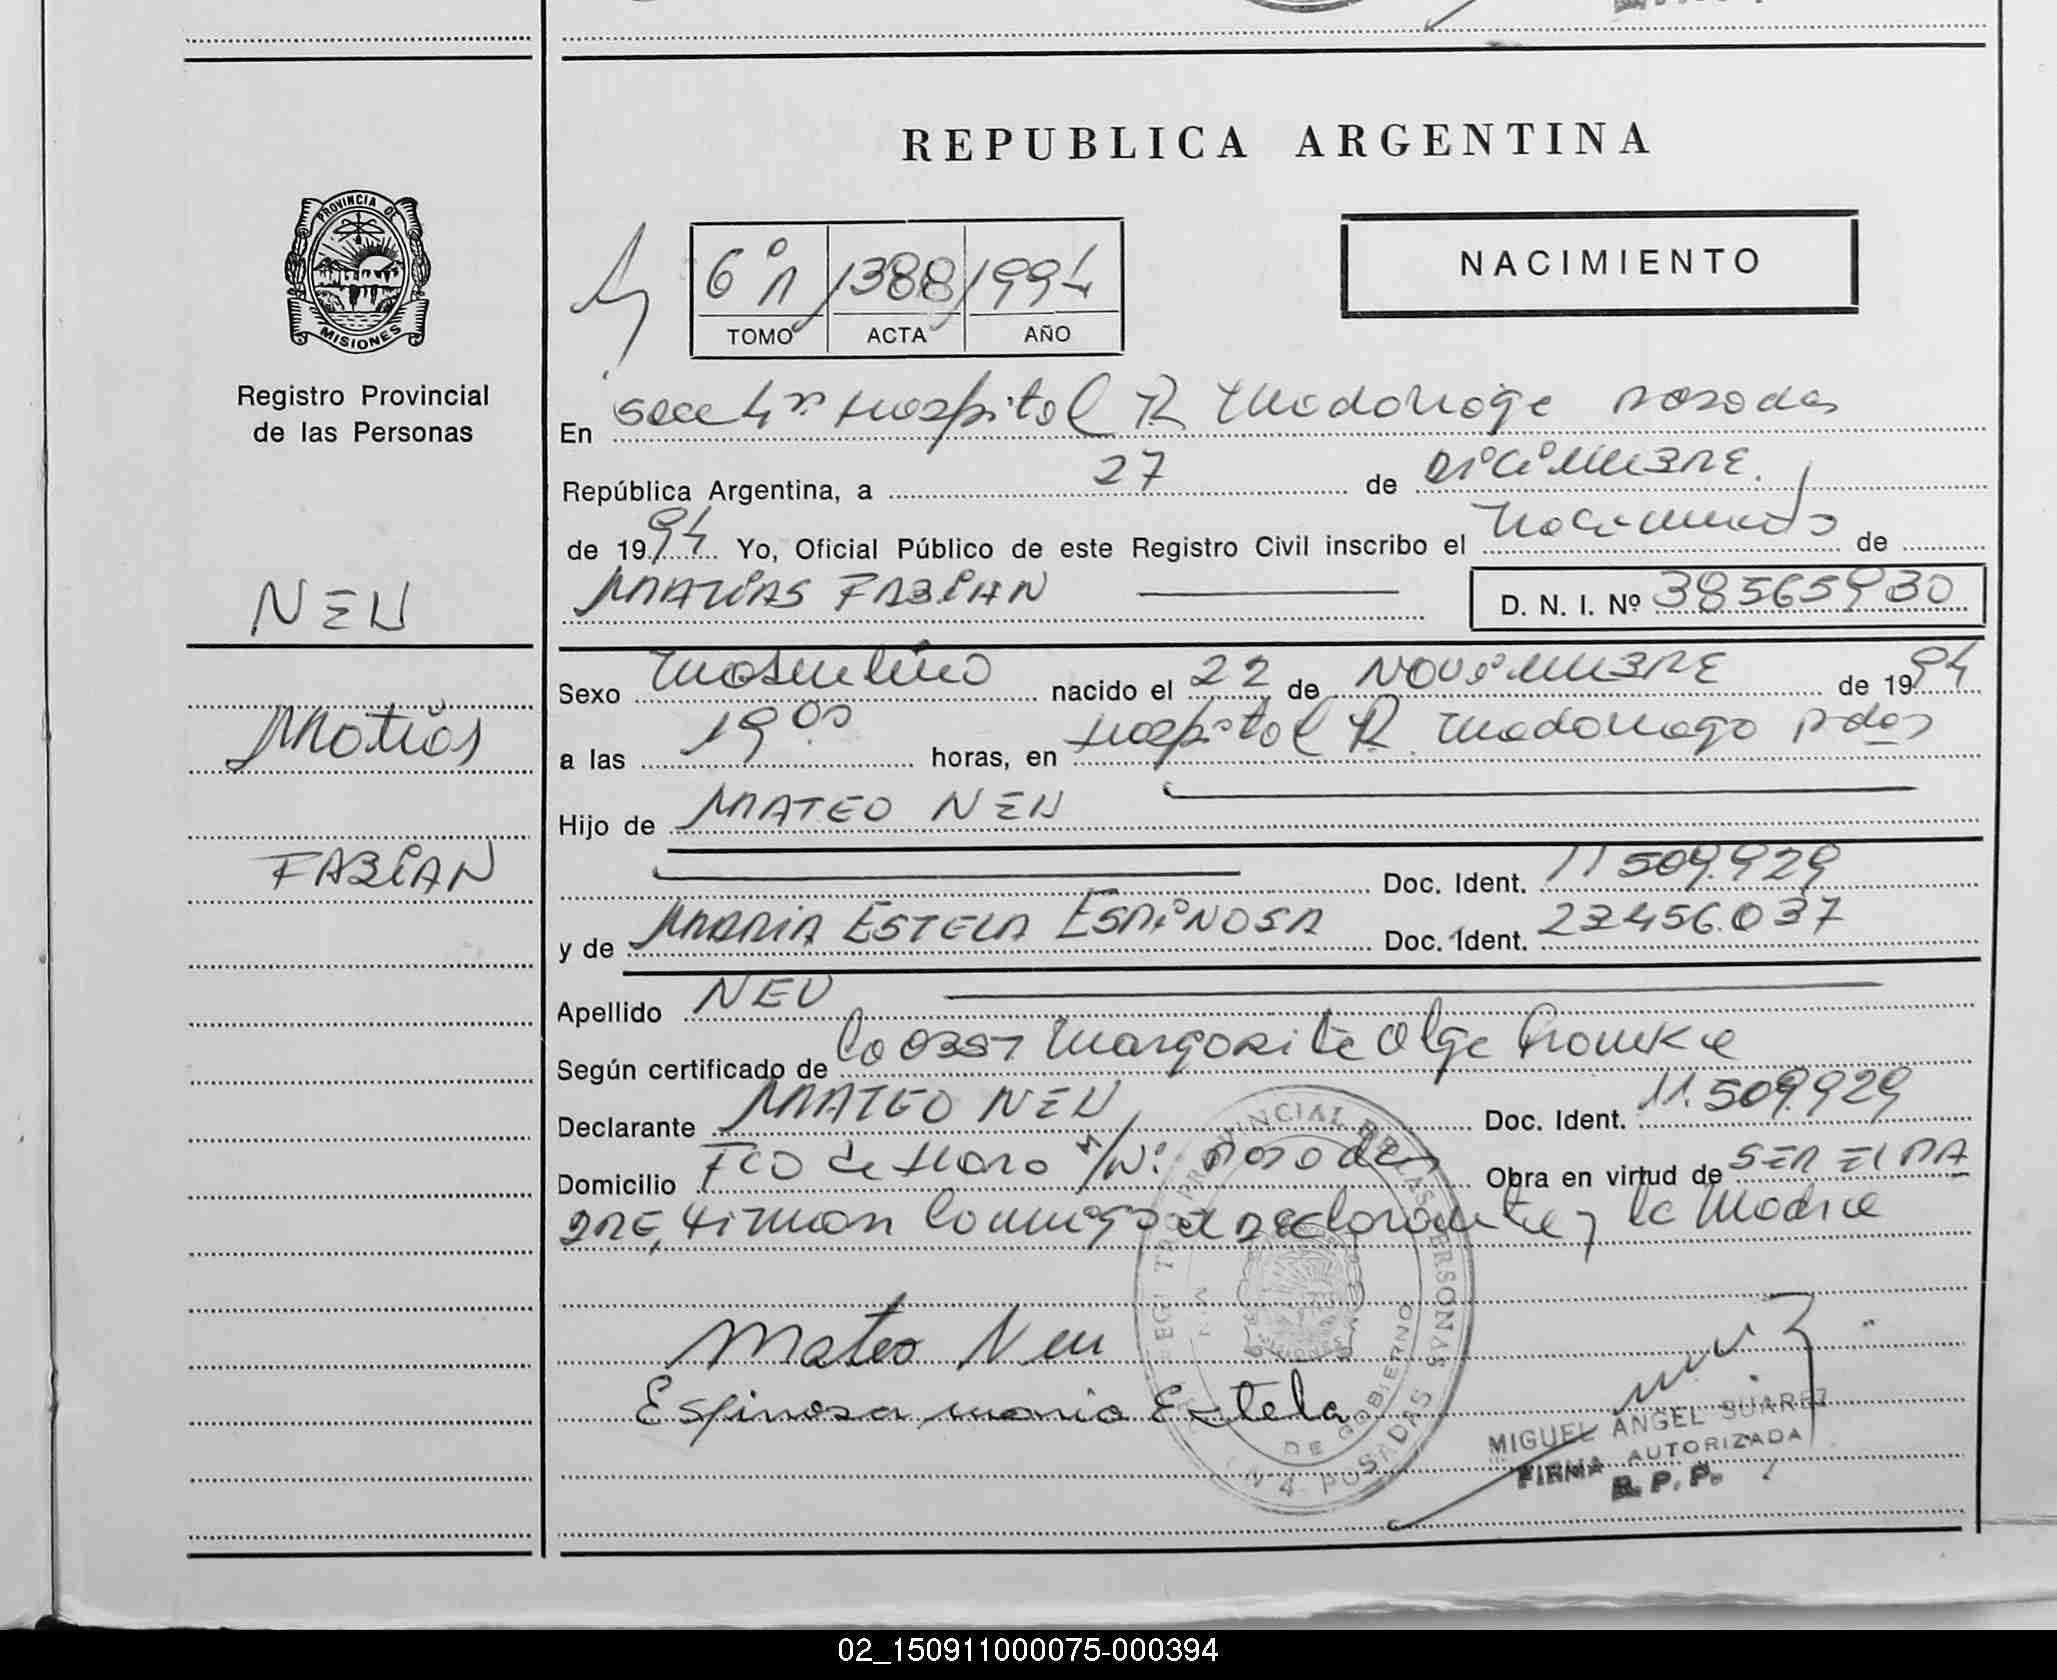 REPUBLICA ARGENTINA
PROVINCIA DE
MISIONES
Registro Provincial
de las Personas
NACIMIENTO
6º A 1388 1994
TOMO ACTA AÑO
En Secc 4ª Hospital R Madariaga Posadas
República Argentina, a 27 de DICIEMBRE.
de 1994 Yo, Oficial Público de este Registro Civil inscribo el Nacimiento de
MATIAS FABIAN D. N. I. Nº 38565930
NEU
Matias
FABIAN
Sexo Masculino nacido el 22 de NOVIEMBRE de 1994
a las 19 00 horas, en Hospital R. Madariaga Pdas
Hijo de MATEO NEU
Doc. Ident. 11 509.929
y de MARIA ESTELA ESPINOSA Doc. Ident. 23456.037
Apellido NEU
Según certificado de Margarita Olga
Declarante MATEO NEU Doc. Ident. 11.509.929
Domicilio FCO de Haro S/Nº Posadas Obra en virtud de SER EL PA
DRE, Firman Conmigo el Declarante y la Madre
Mateo Neu
Espinosa maria Estela
REGISTRO PROVINCIAL DE LAS PERSONAS
DE GOBIERNO
MISIONES
N 4 POSADAS
MIGUEL ANGEL SUAREZ
FIRMA AUTORIZADA
R. P. P.
02_150911000075-000394